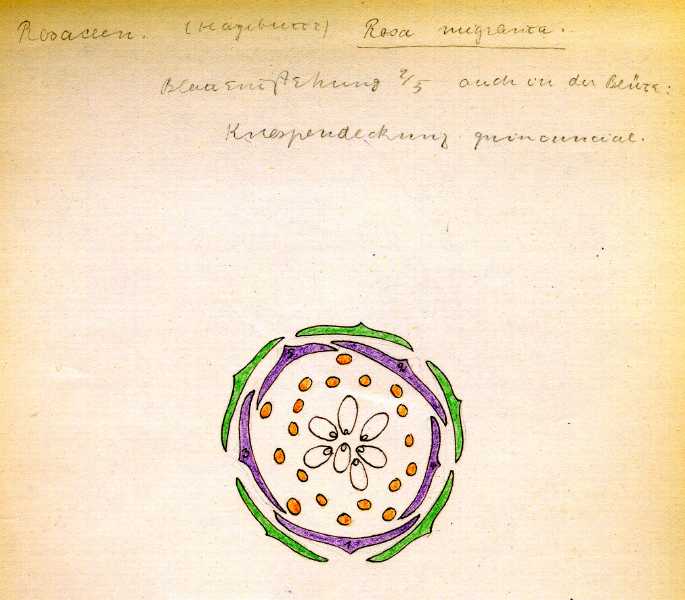 Rosaceen. (Hagebutte) Rosa migranta.
Blattentstehung 2/5 auch in der Blüte:
Knospendeckung quincuncial.
5
2
3
1